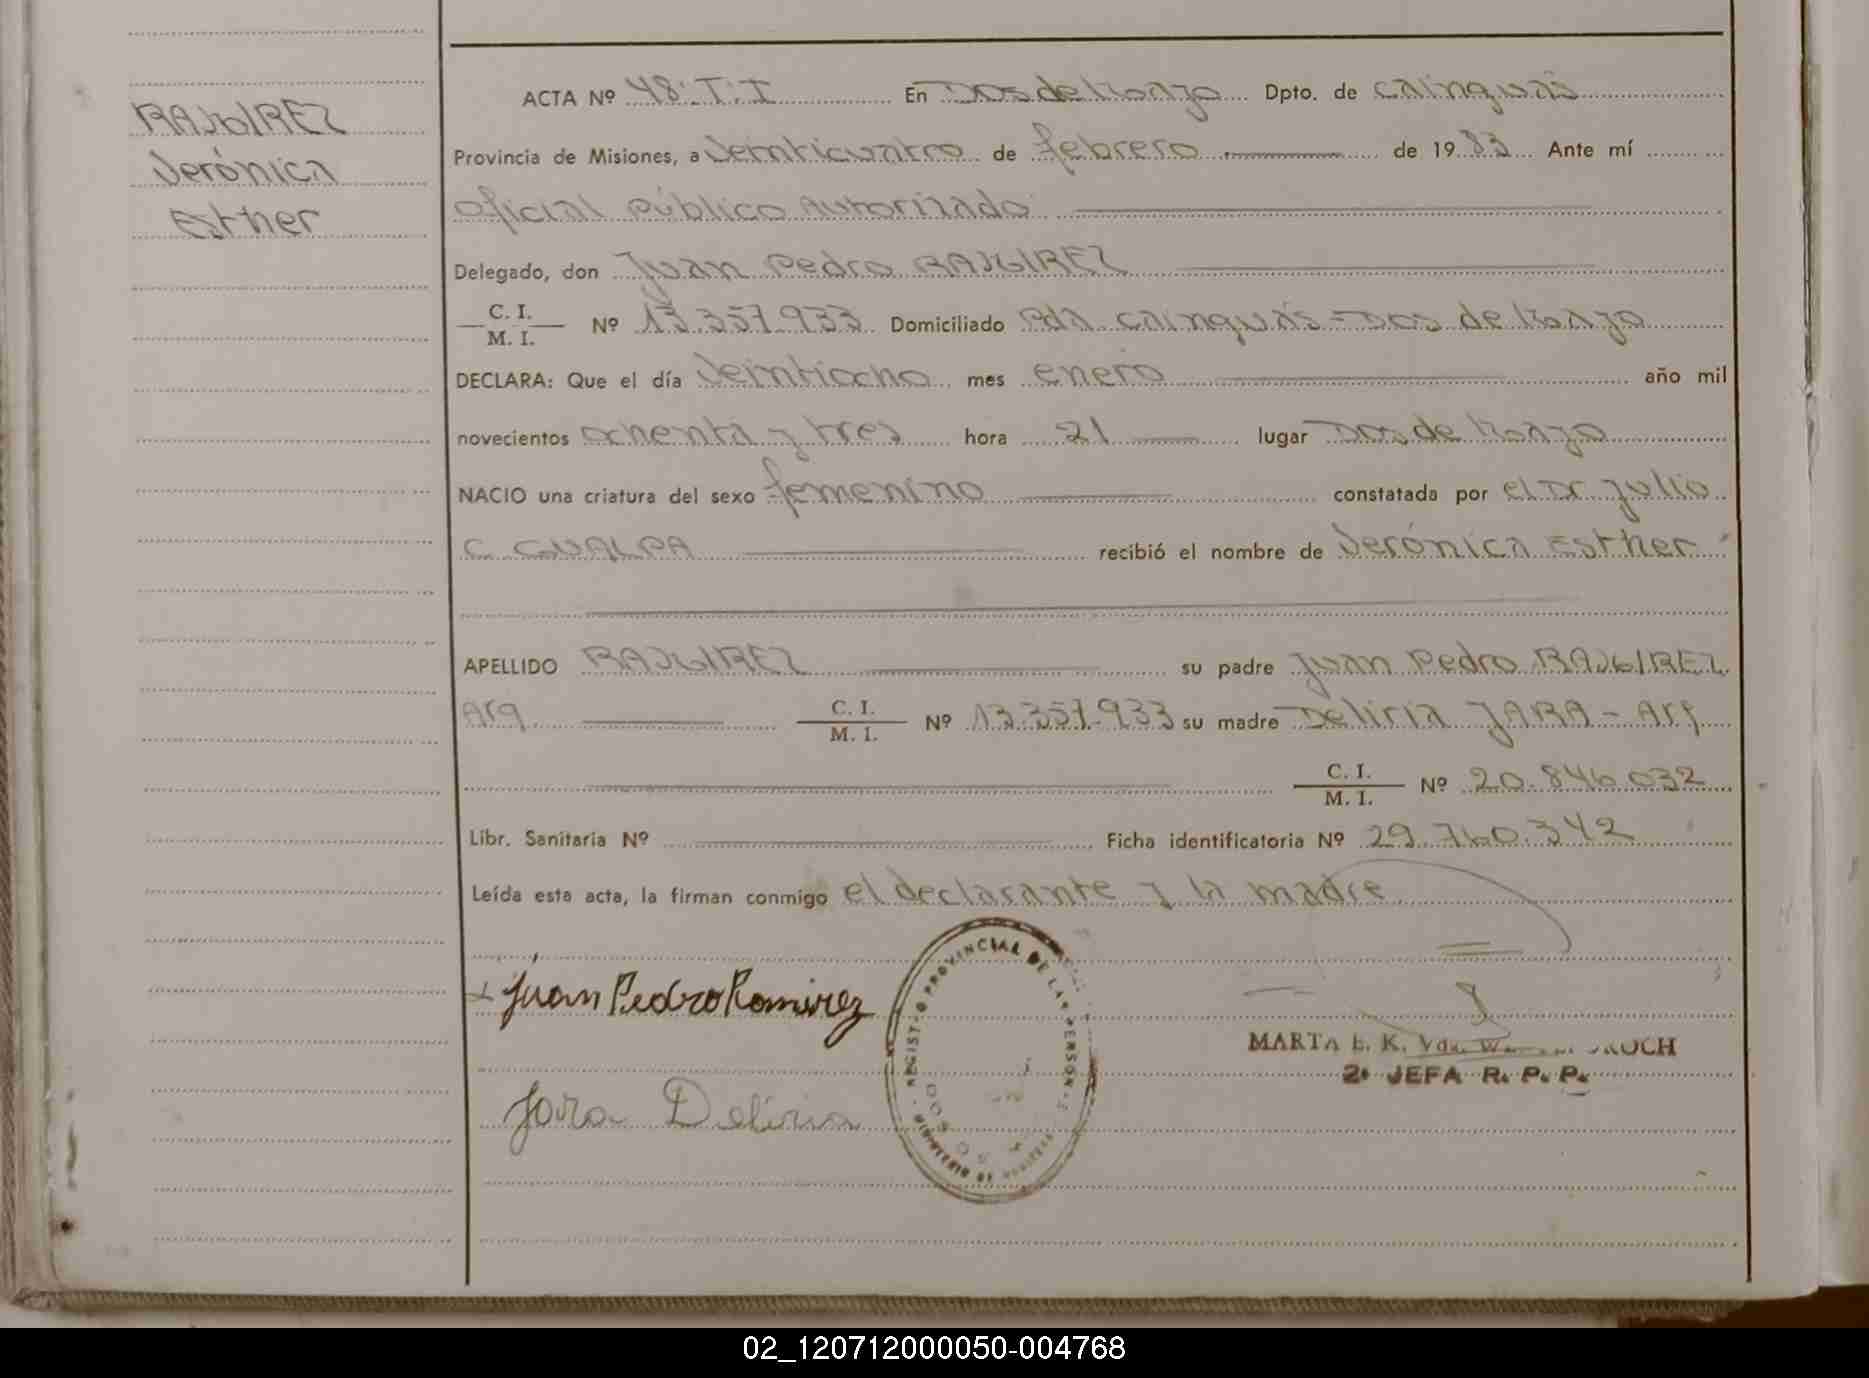 RAMIREZ
Verónica
Esther
ACTA Nº 48. T. I En Dos de Mayo Dpto. de Cainguás
Provincia de Misiones, a veinticuatro de febrero de 1983 Ante mí
oficial Público Autorizado
Delegado, don Juan Pedro RAMIREZ
C. I.
M. I. Nº 13.357.933 Domiciliado Pda Cainguás - Dos de Mayo
DECLARA: Que el día veintiocho mes enero año mil
novecientos ochenta y tres hora 21 lugar Dos de Mayo
NACIO una criatura del sexo femenino constatada por el Dr. Julio
C. GUALPA recibió el nombre de Verónica Esther
APELLIDO RAMIREZ su padre Juan Pedro RAMIREZ
Arg. C. I.
M. I. Nº 13.357.933 su madre Deliria JARA - Arg
C. I.
M. I. Nº 20.846.032
Libr. Sanitaria Nº Ficha identificatoria Nº 29.760.342
Leída esta acta, la firman conmigo el declarante y la madre
Juan Pedro Ramirez
REGISTRO PROVINCIAL DE LAS PERSONAS
MARTA E. K. Vda.
2ª JEFA R. P. P.
Jara Deliria
02_120712000050-004768